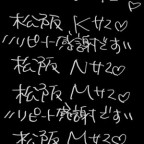 松阪 Kサン♡
〃リピート感謝です〃
松阪 Nサン♡
松阪 Mサン♡
〃リピート感謝です〃
松阪 Mサン♡